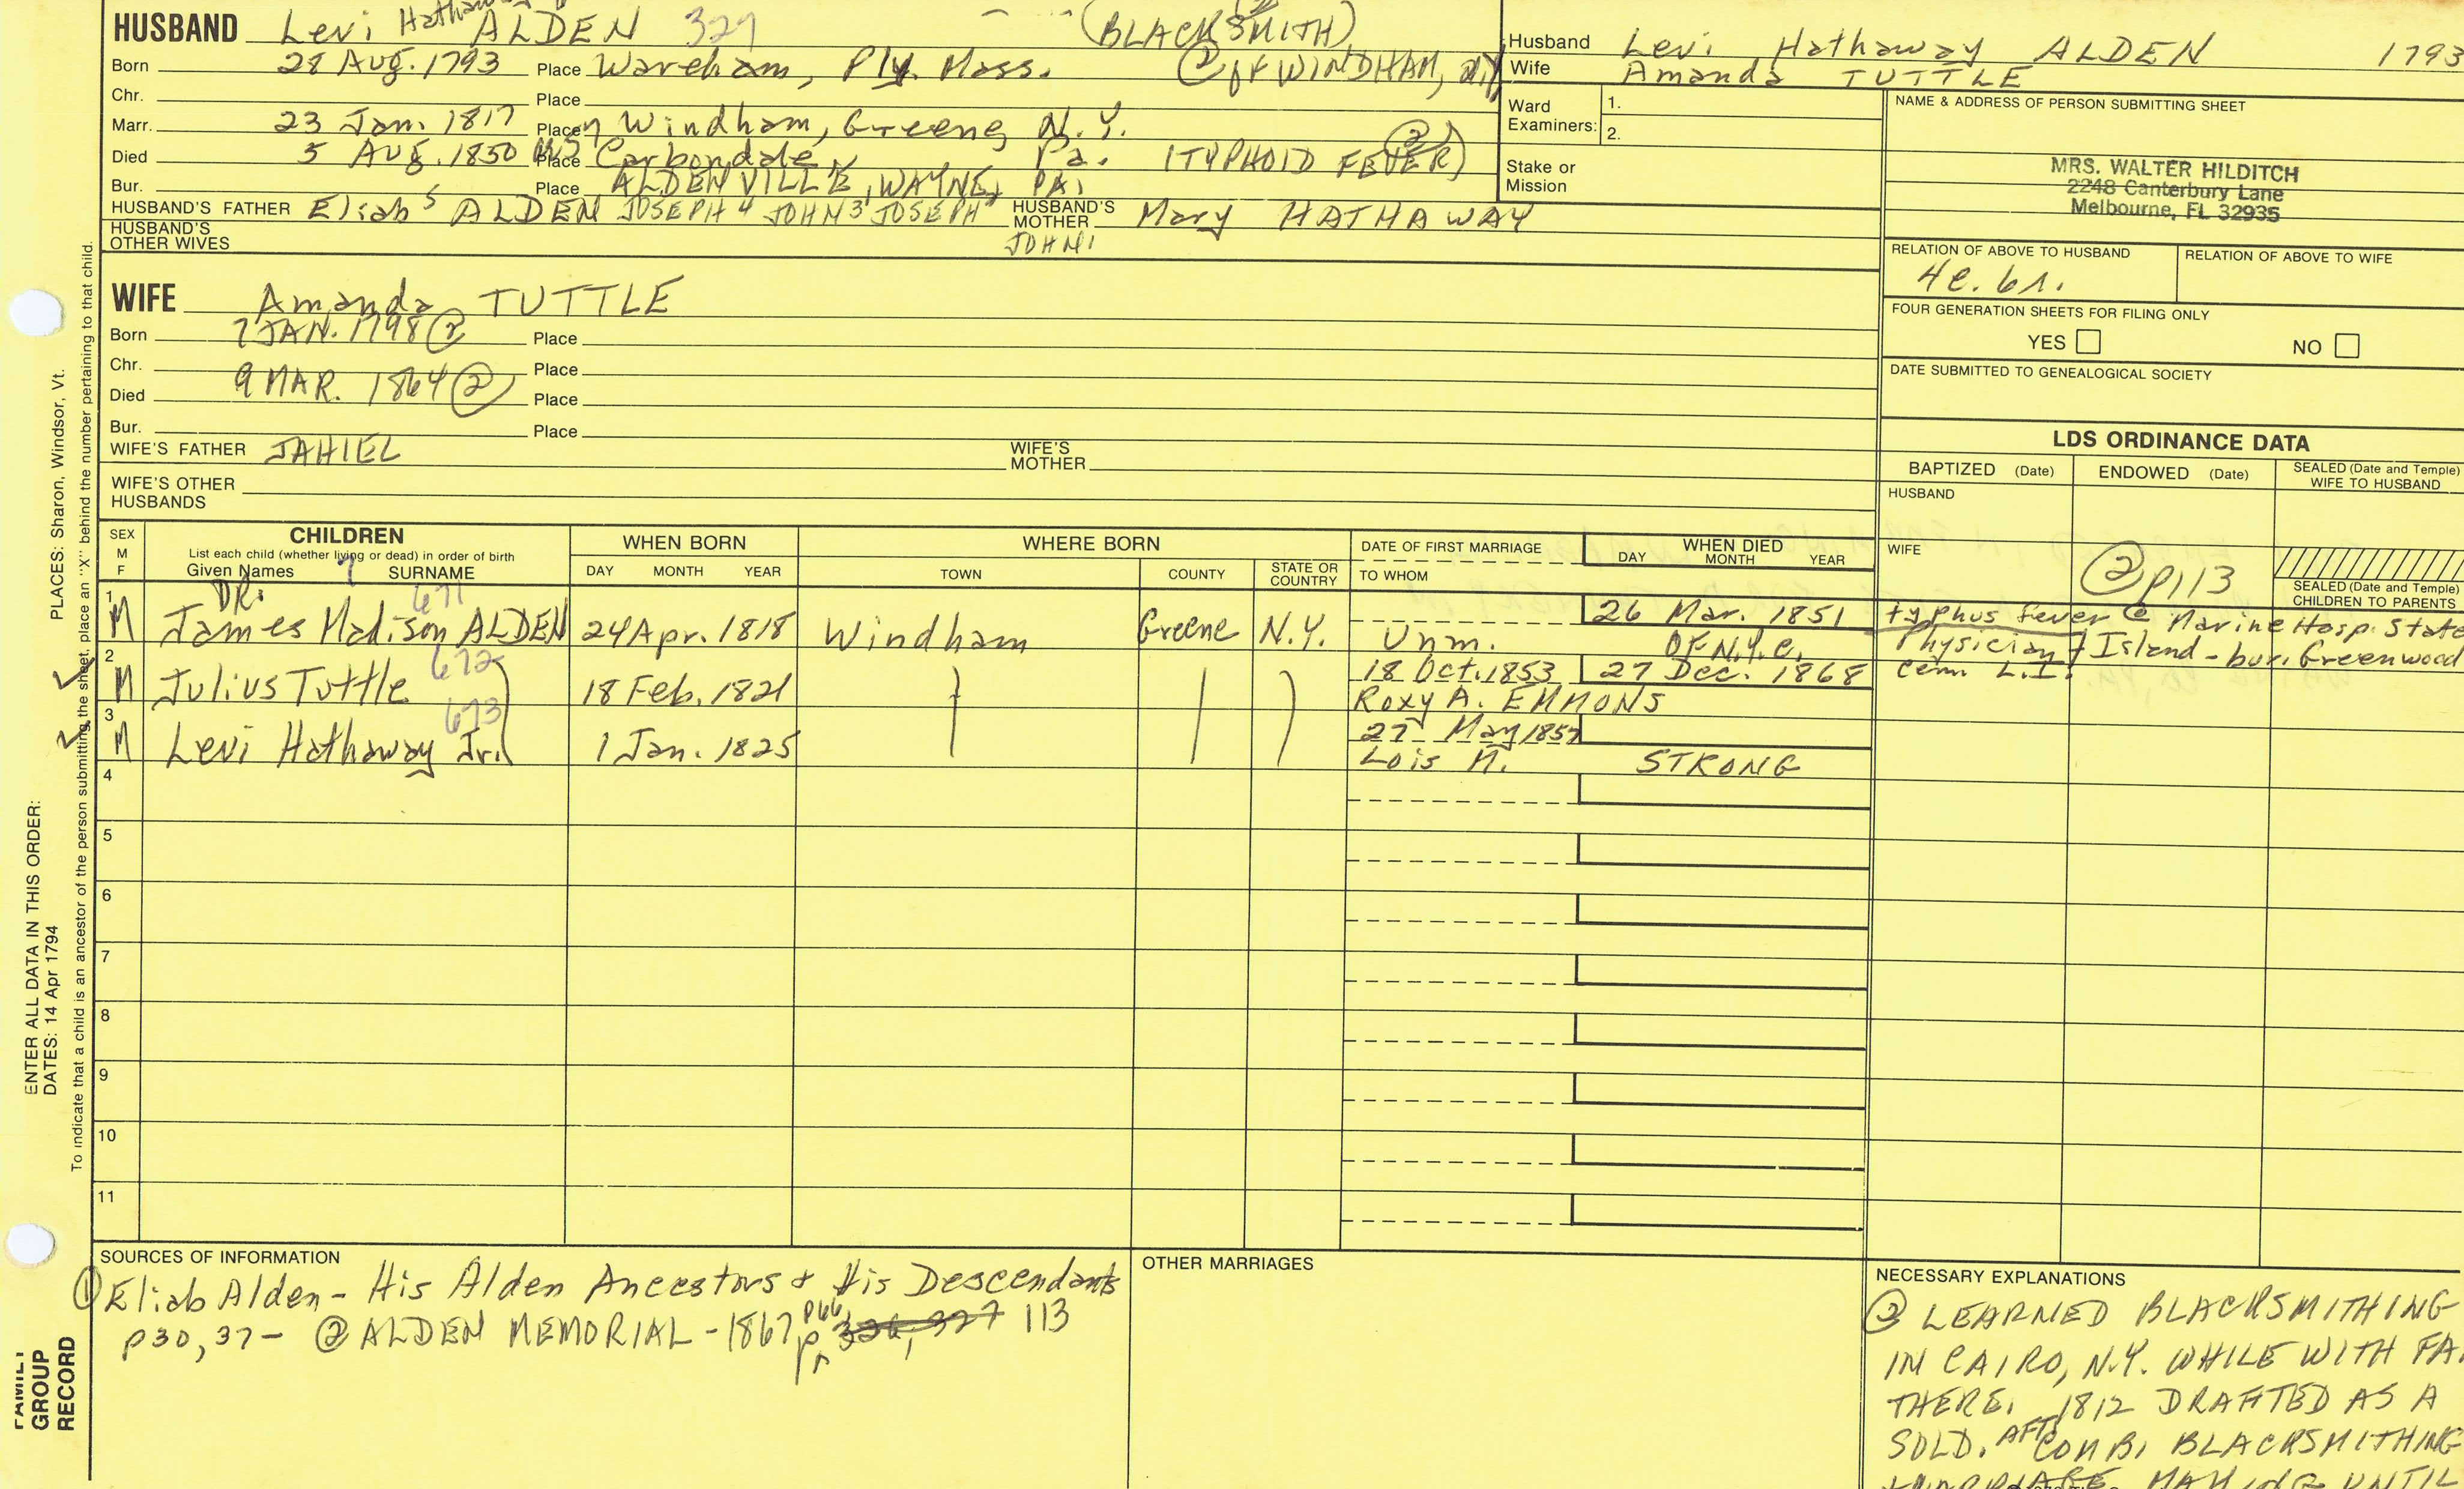 HUSBAND Levi Hathaway ALDEN 327 (BLACKSMITH)
Born 28 Aug. 1793 Place Wareham, Ply. Mass. @ of WINDHAM, N.Y.
Chr. Place
Marr. 23 Jan. 1817 Place Windham, Greene, N.Y.
Died 5 AUG. 1850 Place Carbondale, Pa. (TYPHOID FEVER) ②
Bur. Place ALDENVILLE, WAYNE, PA.
HUSBAND'S FATHER Eliab 5 ALDEN JOSEPH 4 JOHN 3 JOSEPH 2 HUSBAND'S MOTHER Mary HATHAWAY
HUSBAND'S OTHER WIVES JOHN 1
Husband Levi Hathaway ALDEN 1793
Wife Amanda TUTTLE
Ward Examiners: 1.
2.
Stake or Mission
NAME & ADDRESS OF PERSON SUBMITTING SHEET
MRS. WALTER HILDITCH
2248 Canterbury Lane
Melbourne, FL 32935
RELATION OF ABOVE TO HUSBAND RELATION OF ABOVE TO WIFE
FOUR GENERATION SHEETS FOR FILING ONLY
YES NO
DATE SUBMITTED TO GENEALOGICAL SOCIETY
WIFE Amanda TUTTLE
Born 7 JAN. 1798 ② Place
Chr. Place
Died 9 MAR. 1864 ② Place
Bur. Place
WIFE'S FATHER JAHIEL WIFE'S MOTHER
WIFE'S OTHER HUSBANDS
LDS ORDINANCE DATA
BAPTIZED (Date) ENDOWED (Date) SEALED (Date and Temple) WIFE TO HUSBAND
HUSBAND
WIFE ② p113
SEALED (Date and Temple) CHILDREN TO PARENTS
SEX M F CHILDREN WHEN BORN WHERE BORN DATE OF FIRST MARRIAGE WHEN DIED
List each child (whether living or dead) in order of birth
Given Names 7 SURNAME DAY MONTH YEAR TOWN COUNTY STATE OR COUNTRY TO WHOM DAY MONTH YEAR
1 M DR. James Madison ALDEN 671 24 Apr. 1818 Windham Greene N.Y. Unm. 26 Mar. 1851 OF N.Y.C. typhus fever @ Marine Hosp. State
Physician Island - bur. Greenwood
Cem. L.I.
2 M Julius Tuttle 672 18 Feb. 1821 18 Oct. 1853 27 Dec. 1868
Roxy A. EMMONS
3 M Levi Hathaway Jr. 673 1 Jan. 1825 27 May 1857
Lois M. STRONG
4
5
6
7
8
9
10
11
SOURCES OF INFORMATION
① Eliab Alden - His Alden Ancestors & His Descendants
p30, 37 - ② ALDEN MEMORIAL - 1867 p66, p 326, 327 113
OTHER MARRIAGES
NECESSARY EXPLANATIONS
② LEARNED BLACKSMITHING
IN CAIRO, N.Y. WHILE WITH FA.
THERE. 1812 DRAFTED AS A
SOLD. AFT. COMB. BLACKSMITHING
MAKING UNTIL
PLACES: Sharon, Windsor, Vt.
ENTER ALL DATA IN THIS ORDER:
DATES: 14 Apr 1794
To indicate that a child is an ancestor of the person submitting the sheet, place an "X" behind the number pertaining to that child.
FAMILY
GROUP
RECORD